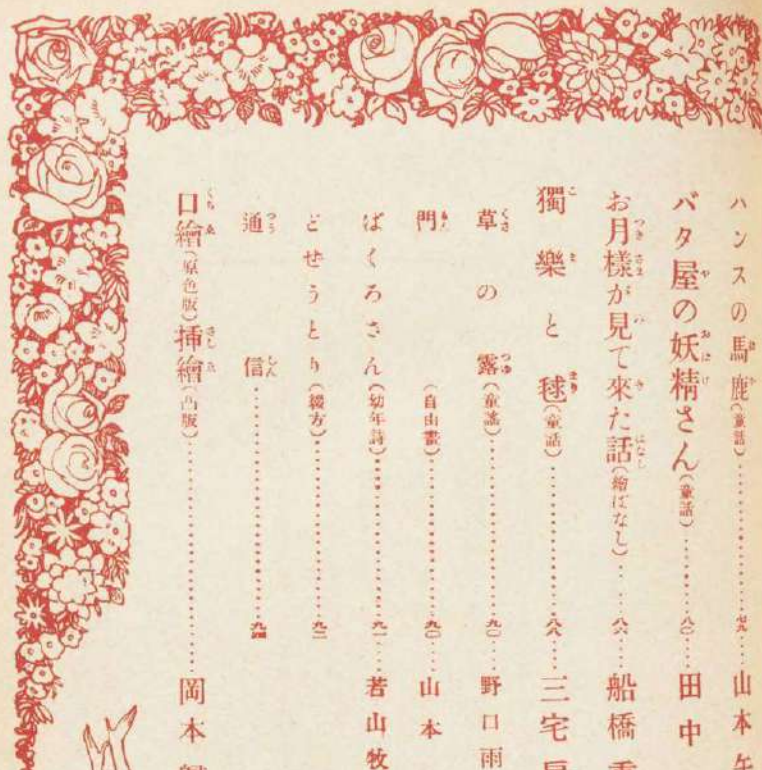 ハンスの馬鹿(童話)……七九……山本
バタ屋の妖精さん(童話)……八〇……田中
お月様が見て來た話(繪ばなし)……八六……船橋
獨樂と毬(童話)……八八……三宅
草の露(童謠)……九〇……野口雨
門(自由畫)……九〇……山本
ばくろさん(幼年詩)……九一……若山牧
どせうとり(綴方)……九二
通信……九四
口繪(原色版)挿繪(凸版)……岡本